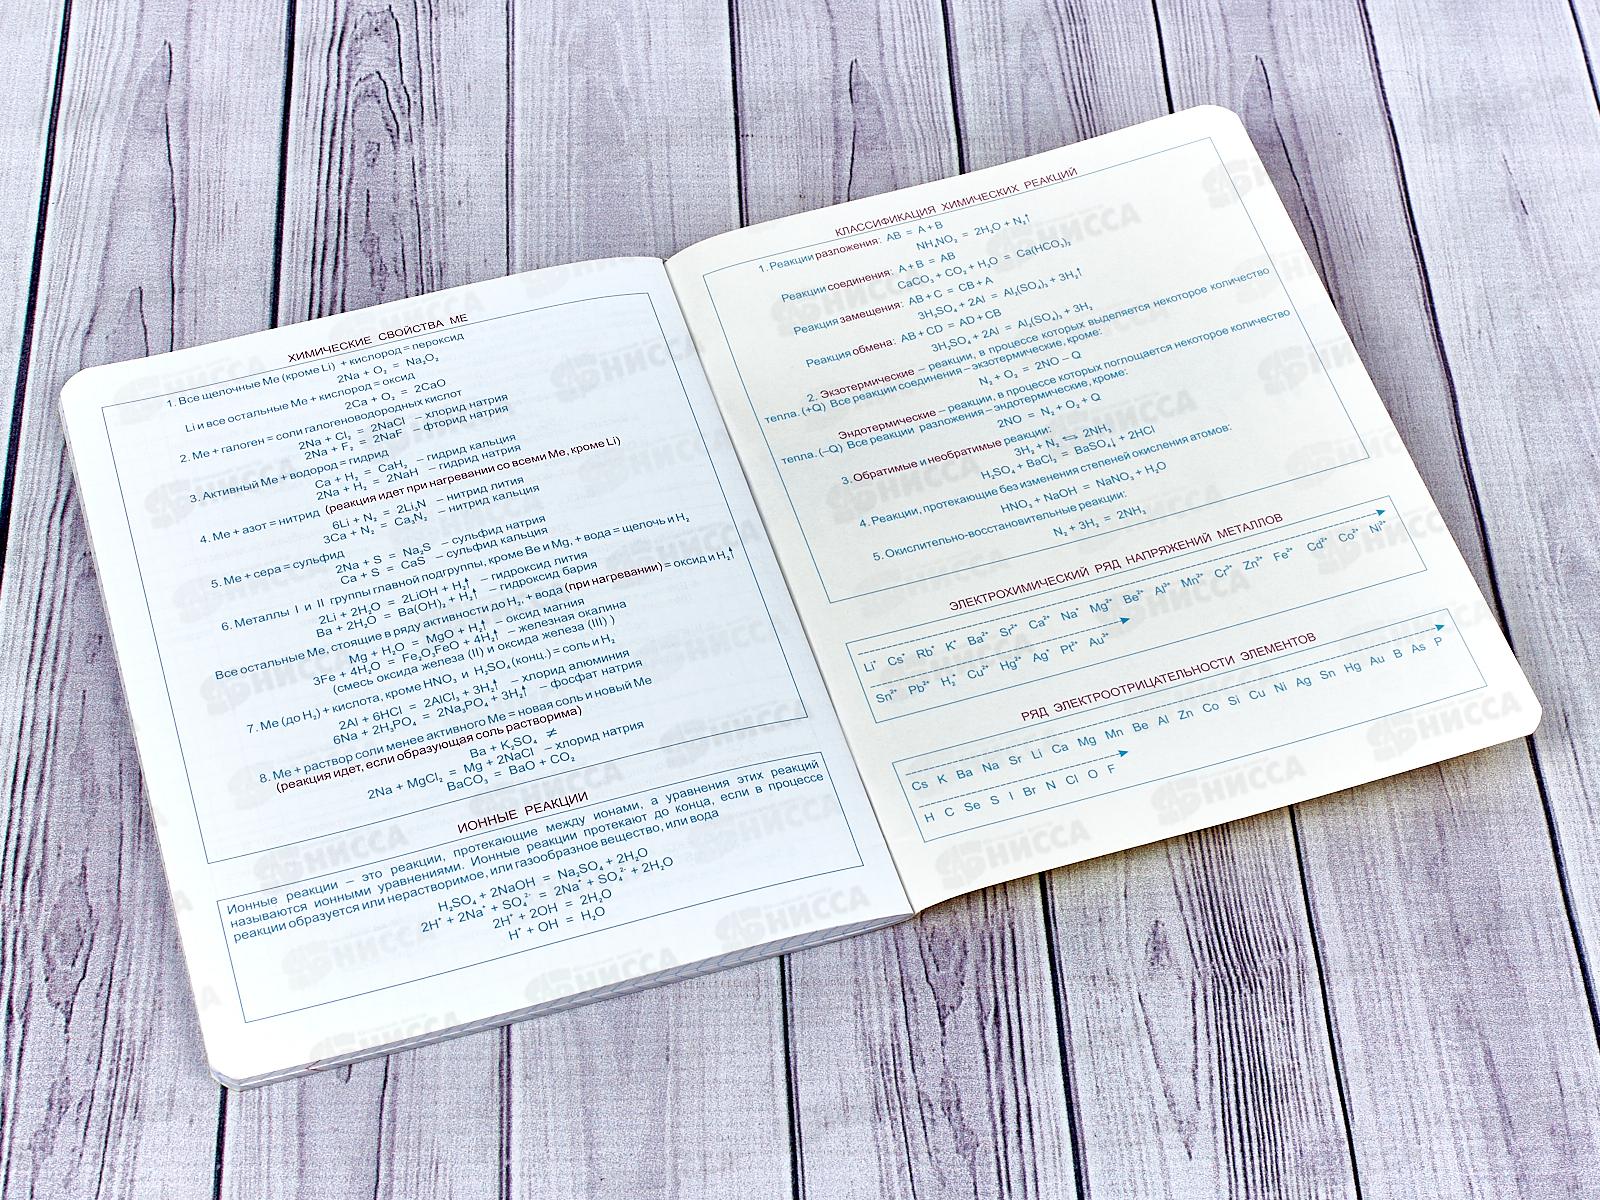 ХИМИЧЕСКИЕ СВОЙСТВА МЕ
1. Все щелочные Ме (кроме Li) + кислород = пероксид
2Na + O₂ = Na₂O₂
Li и все остальные Ме + кислород = оксид
2Ca + O₂ = 2CaO
2. Ме + галоген = соли галогеноводородных кислот
2Na + Cl₂ = 2NaCl – хлорид натрия
2Na + F₂ = 2NaF – фторид натрия
3. Активный Ме + водород = гидрид
Ca + H₂ = CaH₂ – гидрид кальция
2Na + H₂ = 2NaH – гидрид натрия
4. Ме + азот = нитрид (реакция идет при нагревании со всеми Ме, кроме Li)
6Li + N₂ = 2Li₃N – нитрид лития
3Ca + N₂ = Ca₃N₂ – нитрид кальция
5. Ме + сера = сульфид
2Na + S = Na₂S – сульфид натрия
Ca + S = CaS – сульфид кальция
6. Металлы I и II группы главной подгруппы, кроме Be и Mg, + вода = щелочь и H₂
2Li + 2H₂O = 2LiOH + H₂↑ – гидроксид лития
Ba + 2H₂O = Ba(OH)₂ + H₂↑ – гидроксид бария
Все остальные Ме, стоящие в ряду активности до H₂, + вода (при нагревании) = оксид и H₂↑
Mg + H₂O = MgO + H₂↑ – оксид магния
3Fe + 4H₂O = Fe₂O₃FeO + 4H₂↑ – железная окалина
(смесь оксида железа (II) и оксида железа (III) )
7. Ме (до H₂) + кислота, кроме HNO₃ и H₂SO₄ (конц.) = соль и H₂
2Al + 6HCl = 2AlCl₃ + 3H₂↑ – хлорид алюминия
6Na + 2H₃PO₄ = 2Na₃PO₄ + 3H₂↑ – фосфат натрия
8. Ме + раствор соли менее активного Ме = новая соль и новый Ме
(реакция идет, если образующая соль растворима)
Ba + K₂SO₄ ≠
2Na + MgCl₂ = Mg + 2NaCl – хлорид натрия
BaCO₃ = BaO + CO₂
ИОННЫЕ РЕАКЦИИ
Ионные реакции – это реакции, протекающие между ионами, а уравнения этих реакций
называются ионными уравнениями. Ионные реакции протекают до конца, если в процессе
реакции образуется или нерастворимое, или газообразное вещество, или вода
H₂SO₄ + 2NaOH = Na₂SO₄ + 2H₂O
2H⁺ + 2Na⁺ + SO₄²⁻ = 2Na⁺ + SO₄²⁻ + 2H₂O
2H⁺ + 2OH = 2H₂O
H⁺ + OH = H₂O
КЛАССИФИКАЦИЯ ХИМИЧЕСКИХ РЕАКЦИЙ
1. Реакции разложения: AB = A + B
NH₄NO₂ = 2H₂O + N₂↑
Реакции соединения: A + B = AB
CaCO₃ + CO₂ + H₂O = Ca(HCO₃)₂
Реакция замещения: AB + C = CB + A
3H₂SO₄ + 2Al = Al₂(SO₄)₃ + 3H₂↑
Реакция обмена: AB + CD = AD + CB
3H₂SO₄ + 2Al = Al₂(SO₄)₃ + 3H₂
2. Экзотермические – реакции, в процессе которых выделяется некоторое количество
тепла. (+Q) Все реакции соединения – экзотермические, кроме:
N₂ + O₂ = 2NO – Q
Эндотермические – реакции, в процессе которых поглощается некоторое количество
тепла. (–Q) Все реакции разложения – эндотермические, кроме:
2NO = N₂ + O₂ + Q
3. Обратимые и необратимые реакции:
3H₂ + N₂ ⇆ 2NH₃
H₂SO₄ + BaCl₂ = BaSO₄↓ + 2HCl
4. Реакции, протекающие без изменения степеней окисления атомов:
HNO₃ + NaOH = NaNO₃ + H₂O
5. Окислительно-восстановительные реакции:
N₂ + 3H₂ = 2NH₃
ЭЛЕКТРОХИМИЧЕСКИЙ РЯД НАПРЯЖЕНИЙ МЕТАЛЛОВ
Li⁺ Cs⁺ Rb⁺ K⁺ Ba²⁺ Sr²⁺ Ca²⁺ Na⁺ Mg²⁺ Be²⁺ Al³⁺ Mn²⁺ Cr³⁺ Zn²⁺ Fe²⁺ Cd²⁺ Co²⁺ Ni²⁺
Sn²⁺ Pb²⁺ H₂ Cu²⁺ Hg²⁺ Ag⁺ Pt²⁺ Au³⁺
РЯД ЭЛЕКТРООТРИЦАТЕЛЬНОСТИ ЭЛЕМЕНТОВ
Cs K Ba Na Sr Li Ca Mg Mn Be Al Zn Co Si Cu Ni Ag Sn Hg Au B As P
H C Se S I Br N Cl O F
НИССА